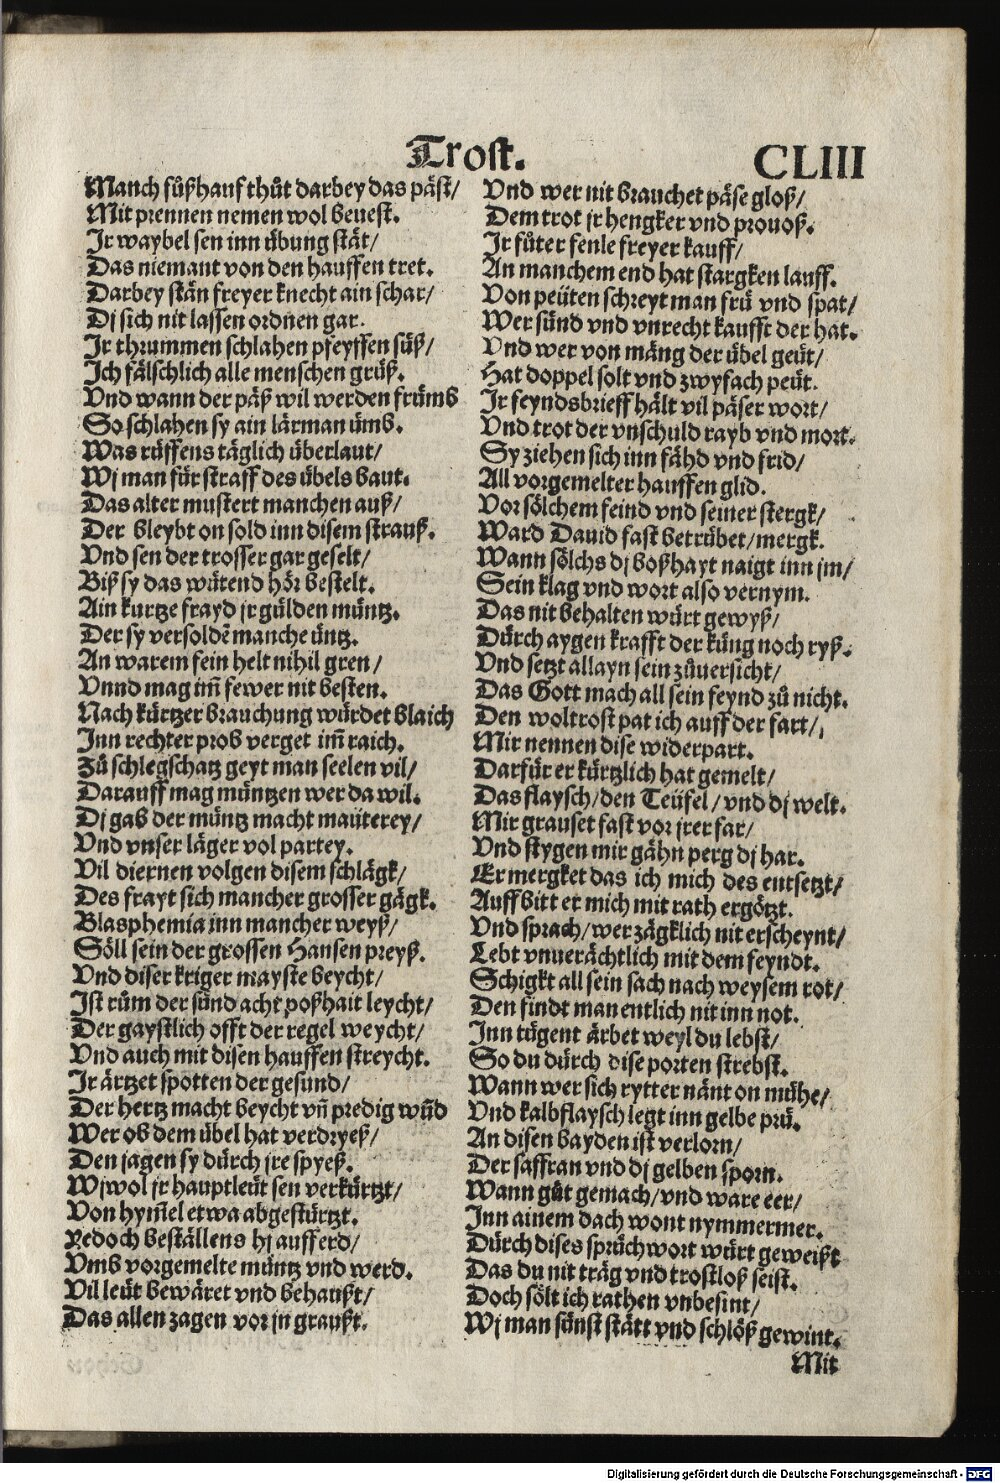 Trost.
CLIII
Manch fůßhauf thůt darbey das päst/
Mit prennen nemen wol bevest.
Jr waybel sen inn übung stät/
Das niemant von den hauffen tret.
Darbey stän freyer knecht ain schar/
Dj sich nit lassen ordnen gar.
Jr thrummen schlahen pfeyffen süß/
Jch fälschlich alle menschen grüß.
Vnd wann der päß wil werden frümb
So schlahen sy ain lärman ümb.
Was rüffens täglich überlaut/
Wj man für straff des übels baut.
Das alter mustert manchen auß/
Der bleybt on sold inn disem strauß.
Vnd sen der trosser gar geselt/
Biß sy das wütend hör bestelt.
Ain kurtze frayd jr gülden müntz.
Der sy versoldē manche üntz.
An warem fein helt nihil gren/
Vnnd mag im̄ fewer nit besten.
Nach kürtzer brauchung würdet blaich
Jnn rechter prob verget im̄ raich.
Zů schlegschatz geyt man seelen vil/
Darauff mag müntzen wer da wil.
Dj gab der müntz macht mauterey/
Vnd vnser läger vol partey.
Vil diernen volgen disem schlägk/
Des frayt sich mancher grosser gägk.
Blasphemia inn mancher weyß/
Söll sein der grossen Hansen preyß.
Vnd diser kriger mayste beycht/
Jst rům der sünd acht poßhait leycht/
Der gaystlich offt der regel weycht/
Vnd auch mit disen hauffen streycht.
Jr ärtzet spotten der gesund/
Der hertz macht beycht vn̄ predig wūd
Wer ob dem übel hat verdryeß/
Den jagen sy dürch jre spyeß.
Wjwol jr hauptleüt sen verkürtzt/
Von hym̄el etwa abgestürtzt.
Yedoch beställens hj aufferd/
Vmb vorgemelte müntz vnd werd.
Vil leüt bewäret vnd behaußt/
Das allen zagen vor jn graußt.
Vnd wer nit brauchet päse gloß/
Dem trot jr hengker vnd provoß.
Jr fůter fenle freyer kauff/
An manchem end hat stargken lauff.
Von peüten schreyt man frü vnd spat/
Wer sünd vnd vnrecht kaufft der hat.
Vnd wer von mäng der übel geüt/
Hat doppel solt vnd zwyfach peüt.
Jr feyndsbrieff hält vil päser wort/
Vnd trot der vnschuld rayb vnd mort.
Sy ziehen sich inn fähd vnd frid/
All vorgemelter hauffen glid.
Vor sölchem feind vnd seiner stergk/
Ward David fast betrübet/mergk.
Wann sölchs dj boßhayt naigt inn jm/
Sein klag vnd wort also vernym.
Das nit behalten würt gewyß/
Dürch aygen krafft der küng noch ryß.
Vnd setzt allayn sein zůversicht/
Das Gott mach all sein feynd zů nicht.
Den woltrost pat ich auff der fart/
Mir nennen dise widerpart.
Darfür er kürtzlich hat gemelt/
Das flaysch/den Teüfel/vnd dj welt.
Mir grauset fast vor jrer far/
Vnd stygen mir gähn perg dj har.
Er mergket das ich mich des entsetzt/
Auff bitt er mich mit rath ergötzt.
Vnd sprach/wer zägklich nit erscheynt/
Lebt vnverächtlich mit dem feyndt.
Schigkt all sein sach nach weysem rot/
Den findt man entlich nit inn not.
Jnn tügent ärbet weyl du lebst/
So du dürch dise porten strebst.
Wann wer sich rytter nänt on mühe/
Vnd kalbflaysch legt inn gelbe prü.
An disen bayden ist verlorn/
Der saffran vnd dj gelben sporn.
Wann gůt gemach/vnd ware eer/
Jnn ainem dach wont nymmermer.
Dürch dises sprüchwort würt geweißt
Das du nit träg vnd trostloß seist.
Doch sölt ich rathen vnbesint/
Wj man sünst stätt vnd schlöß gewint.
Mit
Digitalisierung gefördert durch die Deutsche Forschungsgemeinschaft - DFG